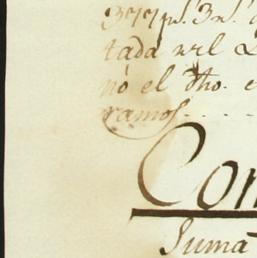 377 ps. 3 rs.
tada
nó el dho.
ramos
Con
Suma